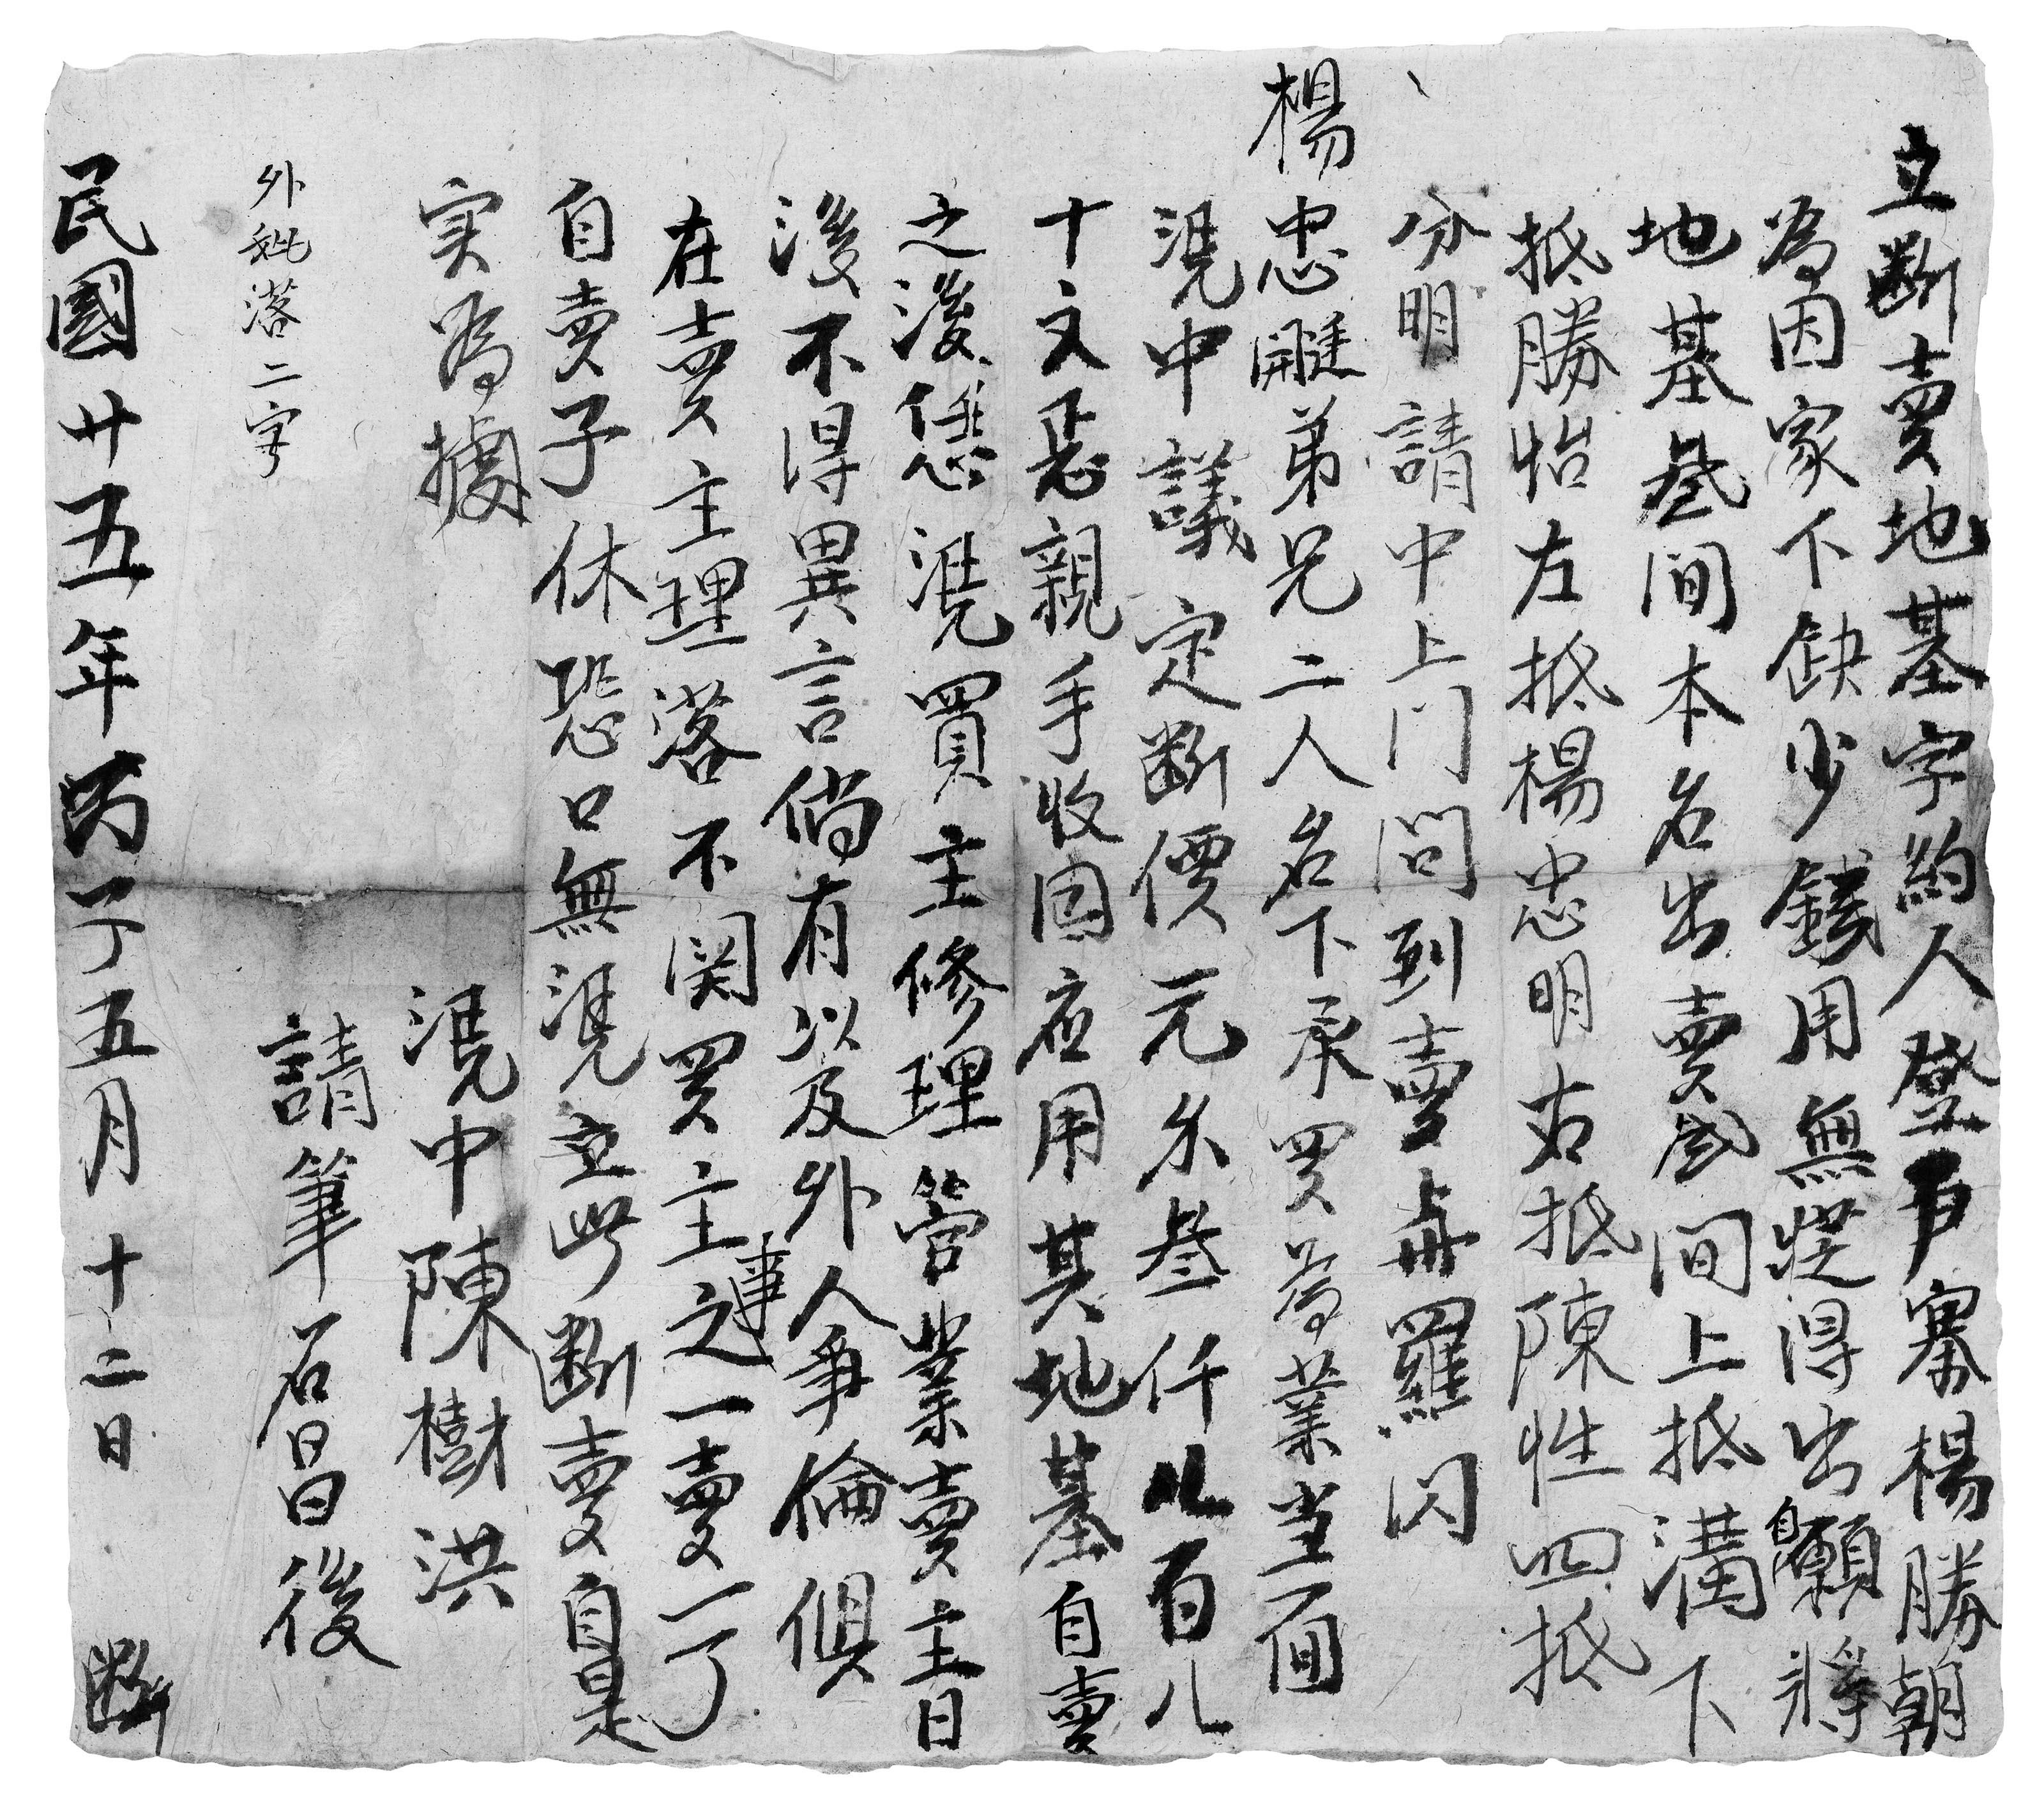 立斷賣地基字約人登戸寨楊勝朝
為因家下缺少錢用無従得出自願將
地基叁间本名出賣叁间上抵溝下
抵勝怡左抵楊忠明右抵陳性四抵
分明請中上门问到賣與羅闪
楊忠弟兄二人名下承買為業当面
凴中議定斷價元錢叁仟八百八
十文是親手收囬应用其地基自賣
之後恁凴買主修理営業賣主日
後不得異言倘有以及外人爭倫俱
在賣主理落不関買主之事一賣一了
自賣子休恐口無凴立此斷賣自是
实為據
凴中陳樹洪
外批落二字
請筆石昌後
民國廿五年丙丁五月十二日 斷